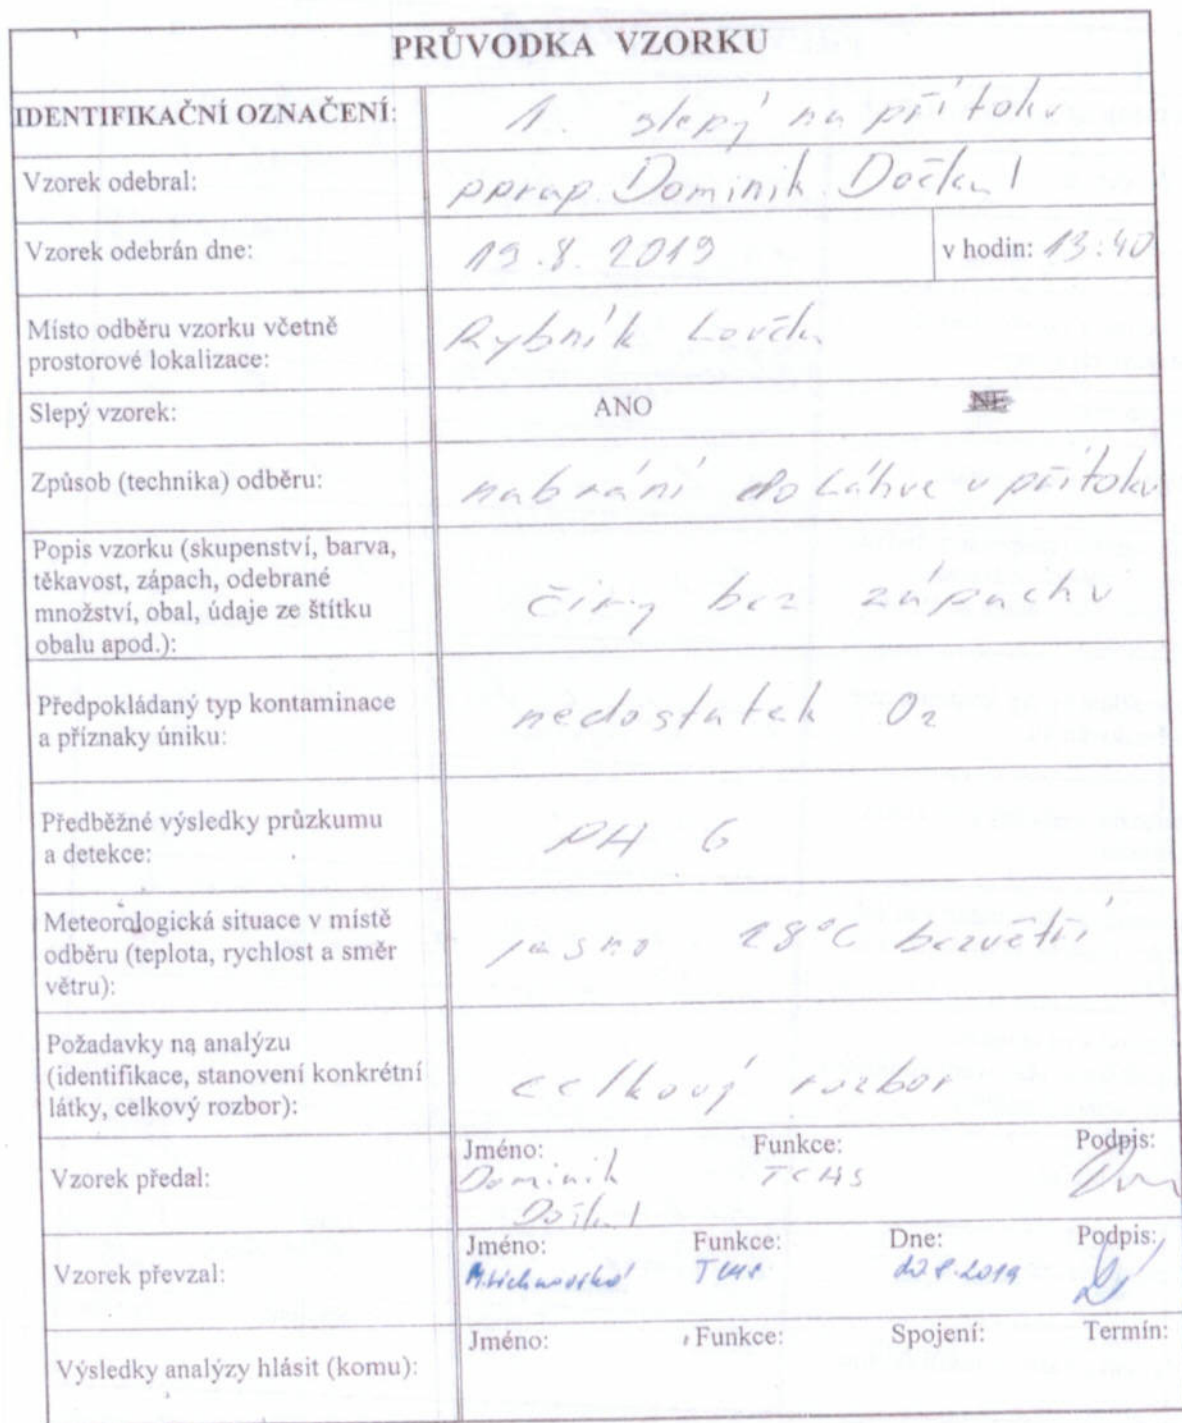 PRŮVODKA VZORKU
IDENTIFIKAČNÍ OZNAČENÍ: 1. slepý na přítoku
Vzorek odebral: pprap. Dominik
Vzorek odebrán dne: 19.8.2019 v hodin: 13:40
Místo odběru vzorku včetně
prostorové lokalizace: Rybník
Slepý vzorek: ANO NE
Způsob (technika) odběru: nabrání do Láhve v přítoku
Popis vzorku (skupenství, barva,
těkavost, zápach, odebrané
množství, obal, údaje ze štítku
obalu apod.):
čirý bez zápachu
Předpokládaný typ kontaminace
a příznaky úniku:
nedostatek O2
Předběžné výsledky průzkumu
a detekce:
PH 6
Meteorologická situace v místě
odběru (teplota, rychlost a směr
větru):
jasno 28°C bezvětří
Požadavky na analýzu
(identifikace, stanovení konkrétní
látky, celkový rozbor):
celkový rozbor
Vzorek předal:
Jméno: Funkce: Podpis:
Dominik TCHS
Vzorek převzal:
Jméno: Funkce: Dne: Podpis:
Výsledky analýzy hlásit (komu):
Jméno: Funkce: Spojení: Termín: